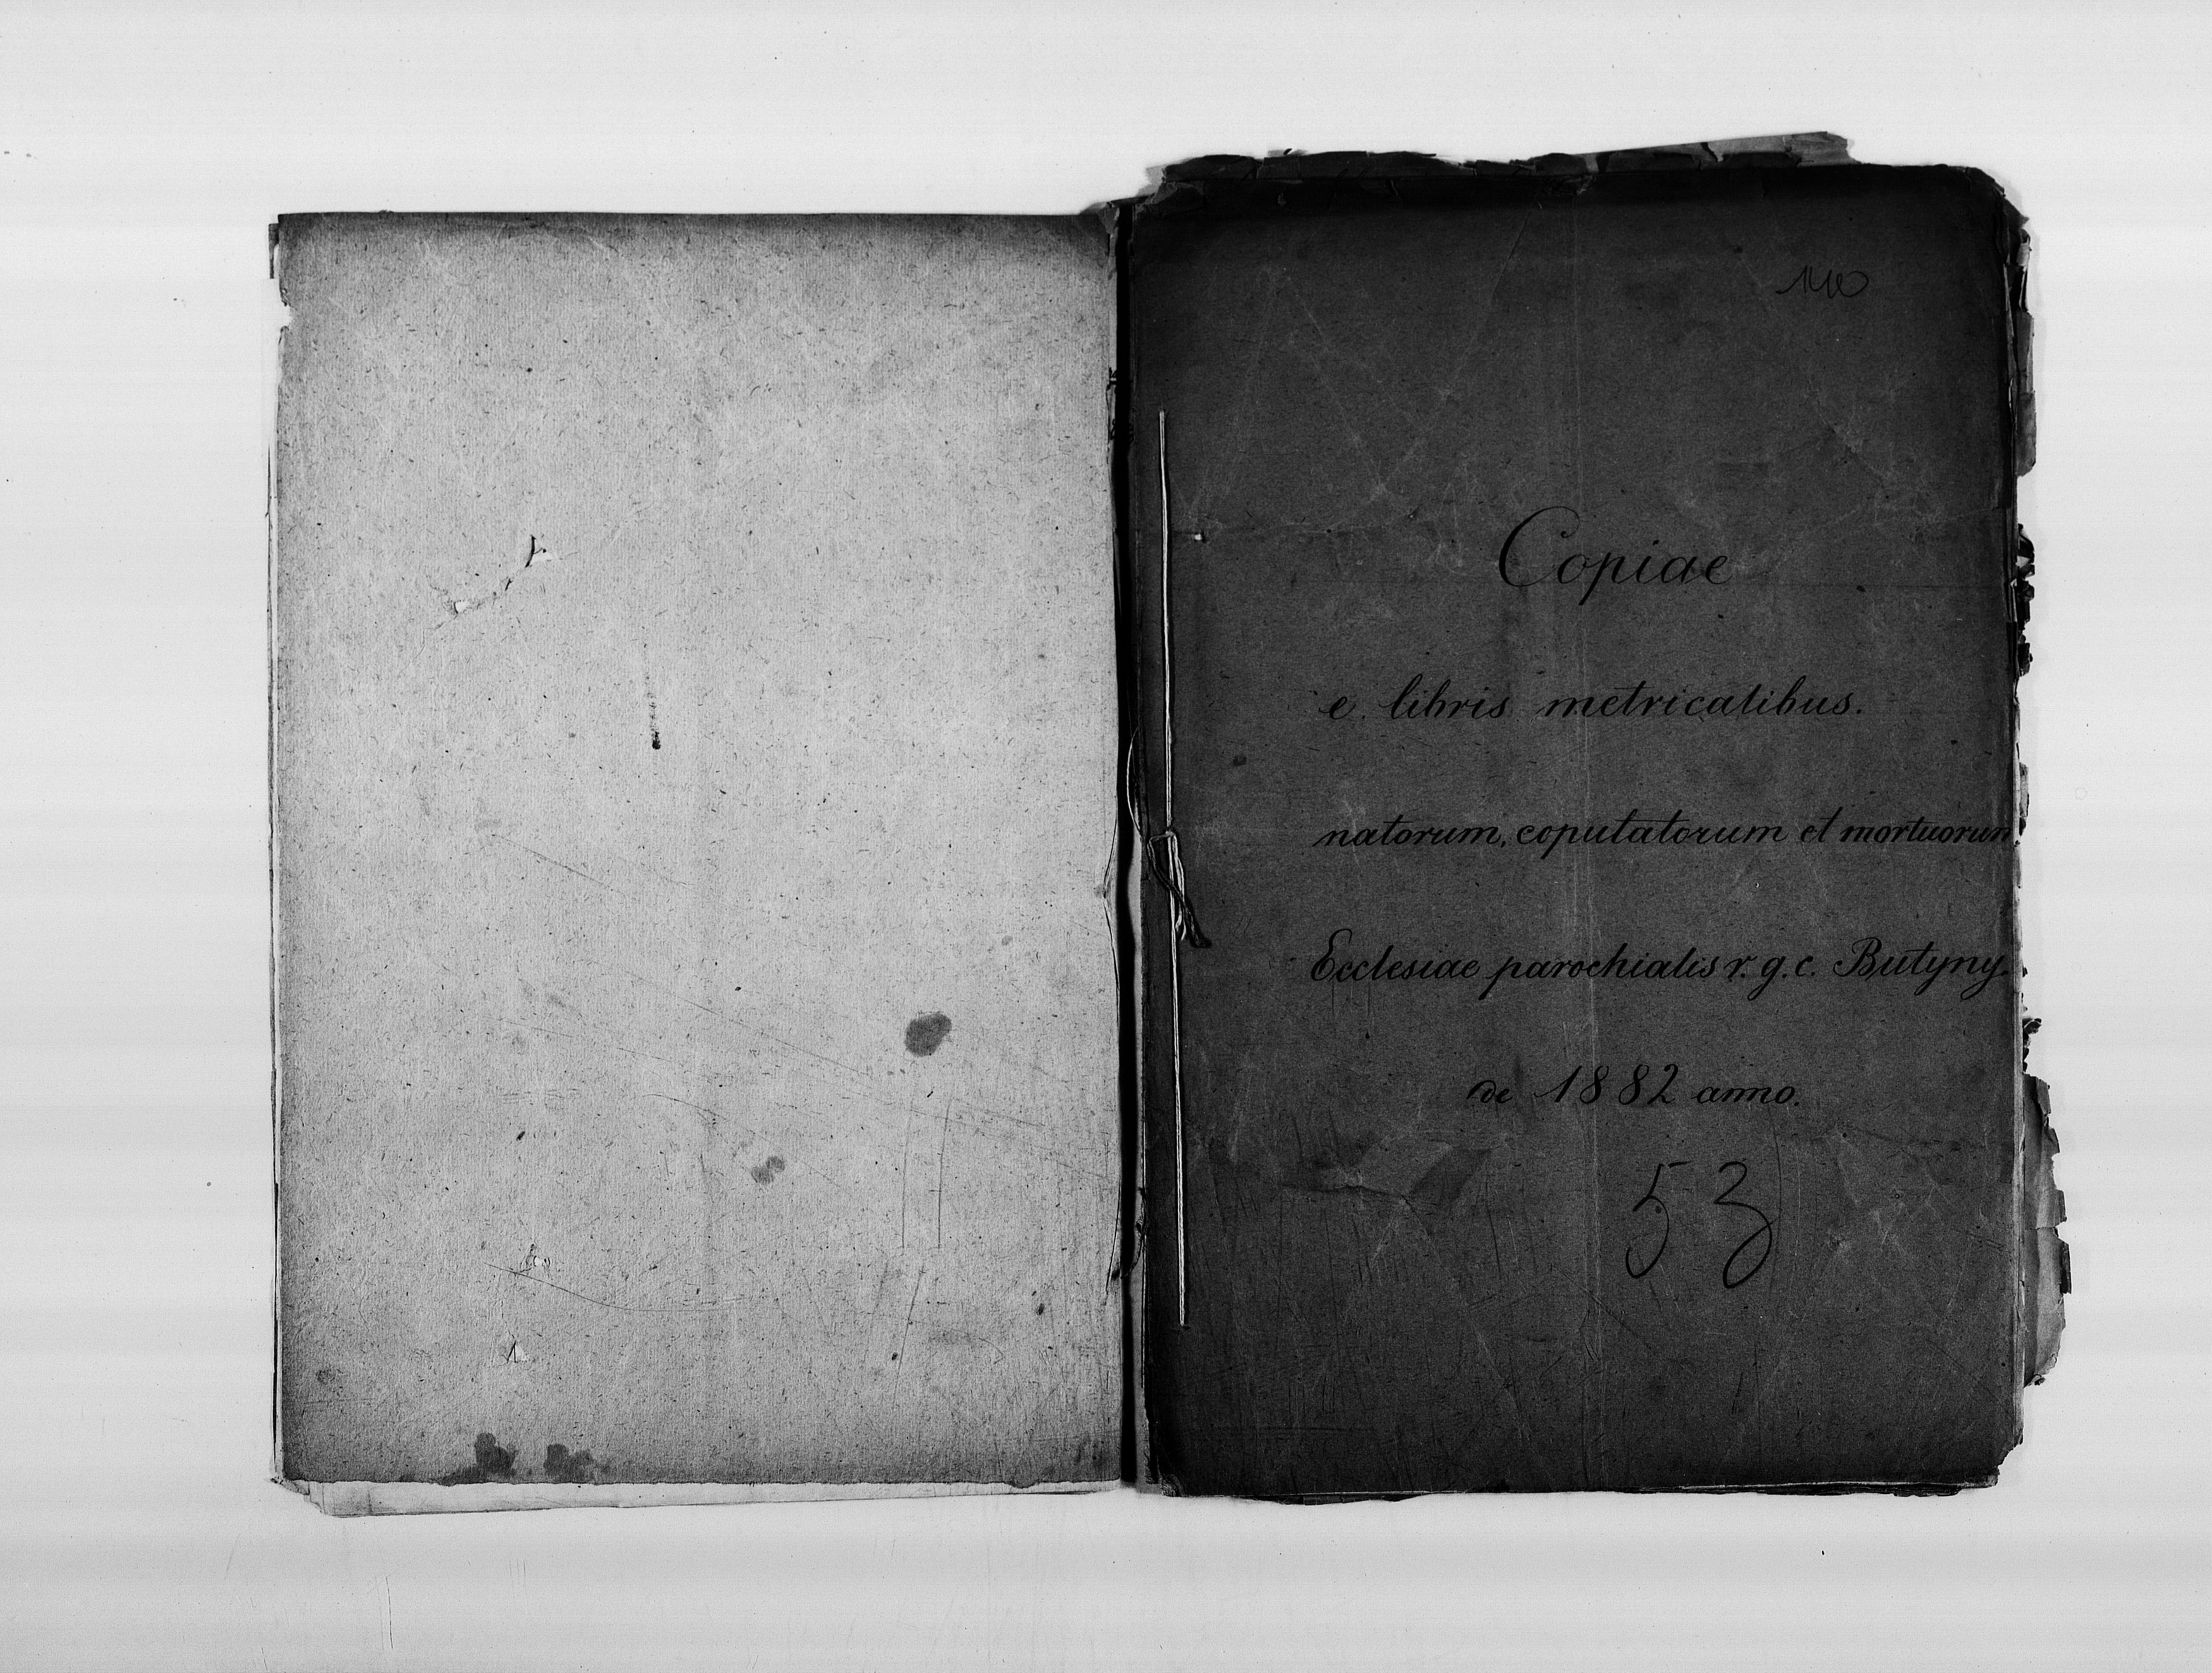 Copiae
e libris metricalibus.
natorum, copulatorum et mortuorum
Ecclesiae parochialis r. g. c. Butyny.
de 1882 anno.
53